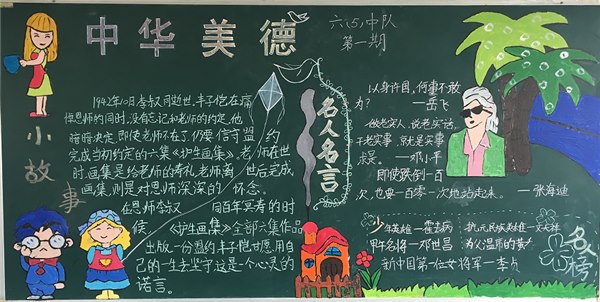 中华美德
六(5)中队
第一期
小故事
1942年10月李叔同逝世,丰子恺在痛
悼恩师的同时,没有忘记和老师的约定,他
暗暗决定,即使老师不在了,仍要信守盟约
完成当初约定的六集《护生画集》,老师在世
时,画集是给老师的寿礼,老师离世后完成
画集,则是对恩师深深的怀念。
在恩师李叔同百年冥寿的时
候《护生画集》全部六集作品
出版,一份盟约丰子恺可愿用自
己的一生去坚守,这是一个心灵的
诺言。
名人名言
以身许国,何事不敢
为? —岳飞
做老实人,说老实话,
干老实事,就是实事
求是。 —邓小平
即使跌倒一百
次,也要一百零一次地站起来。—张海迪
少年英雄—霍去病
甲午名将—邓世昌
新中国第一位女将军—李贞
抗元民族英雄—文天祥
为人温和的黄
名榜